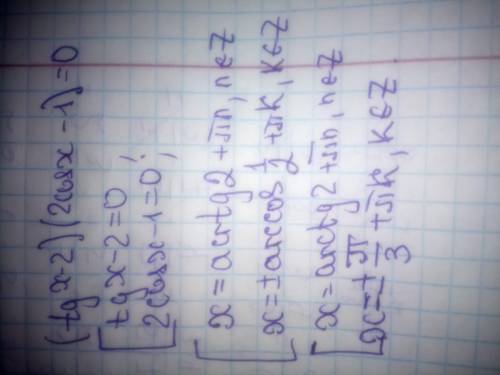 (tg x-2)(2cosx-1)=0
[tgx-2=0,
2cosx-1=0;
[x=acrtg2+πn, n∈Z
x=±arccos 1/2 +πk, k∈Z
[x=arctg2+πn, n∈Z
x=± π/3 +πk, k∈Z.